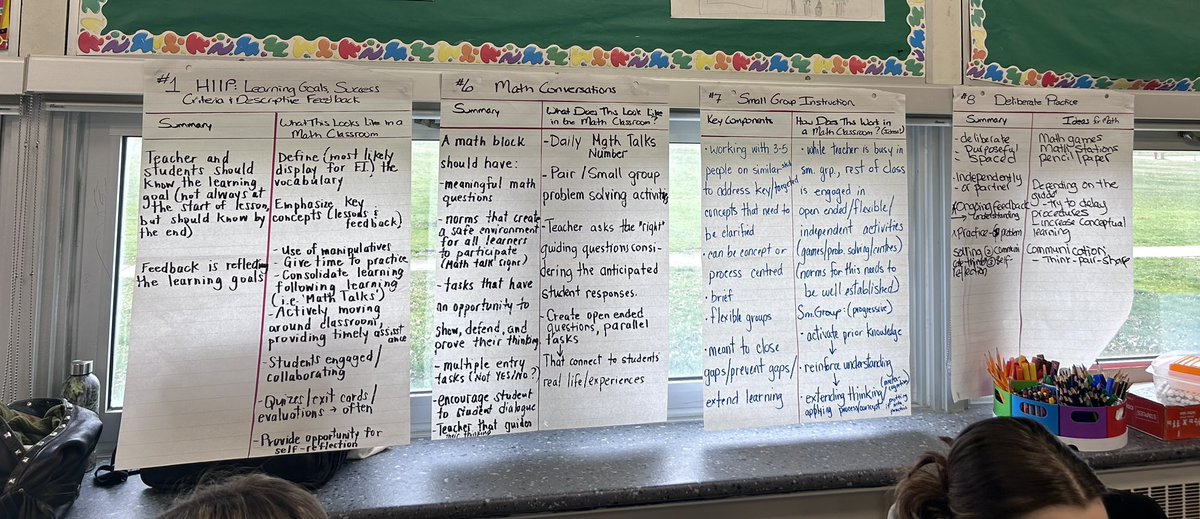 #1 HIIP: Learning Goals, Success
Criteria & Descriptive Feedback
Summary
Teacher and
students should
know the learning
goal (not always at
the start of lesson,
but should know by
the end)
Feedback is reflecting
the learning goals
What This Looks Like in a
Math Classroom
Define (most likely
display for FI) the
vocabulary
Emphasize key
concepts (lessons &
feedback)
- Use of manipulatives
- Give time to practice
- Consolidate learning
following learning
(i.e. 'Math Talks')
- Actively moving
around classroom,
providing timely assistance
- Students engaged/
collaborating
- Quizes/exit cards/
evaluations → often
- Provide opportunity for
self-reflection
#6 Math Conversations
Summary
A math block
should have:
- meaningful math
questions
- norms that create
a safe environment
for all learners
to participate
(Math talk signs)
- tasks that have
an opportunity to
show, defend, and
prove their thinking
- multiple entry
tasks (Not YES/No?)
- encourage student
to student dialogue
- Teacher that guides
their thinking
What Does This Look Like
in the Math Classroom?
- Daily Math Talks
Number
- Pair/Small group
problem solving activities
- Teacher asks the "right"
guiding questions consi-
dering the anticipated
student responses.
- Create open ended
questions, parallel
tasks
↓
That connect to students'
real life/experiences
#7 Small Group Instruction
Key Components
· working with 3-5
people on similar
to address key/targeted
concepts that need to
be clarified
· can be concept or
process centred
· brief
· flexible groups
· meant to close
gaps/prevent gaps/
extend learning
How Does This Work in
a Math Classroom?
· while teacher is busy in
sm. grp., rest of class
is engaged in
open ended/flexible/
independent activities
(games/prob. solving/centres)
(norms for this needs to
be well established)
Sm. Group: (progressive)
· activate prior knowledge
↓
· reinforce understanding
↓
· extending thinking
applying process/concept
#8 Deliberate Practice
Summary
- deliberate
- purposeful
- spaced
- Independently
- or partner
Ongoing feedback
→ understanding
Practice
solving
reflection
Ideas for Math
Math games
Math stations
pencil/paper
Depending on the
guide
- Try to delay
procedures
- increase conceptual
learning
Communication
- Think-pair-share